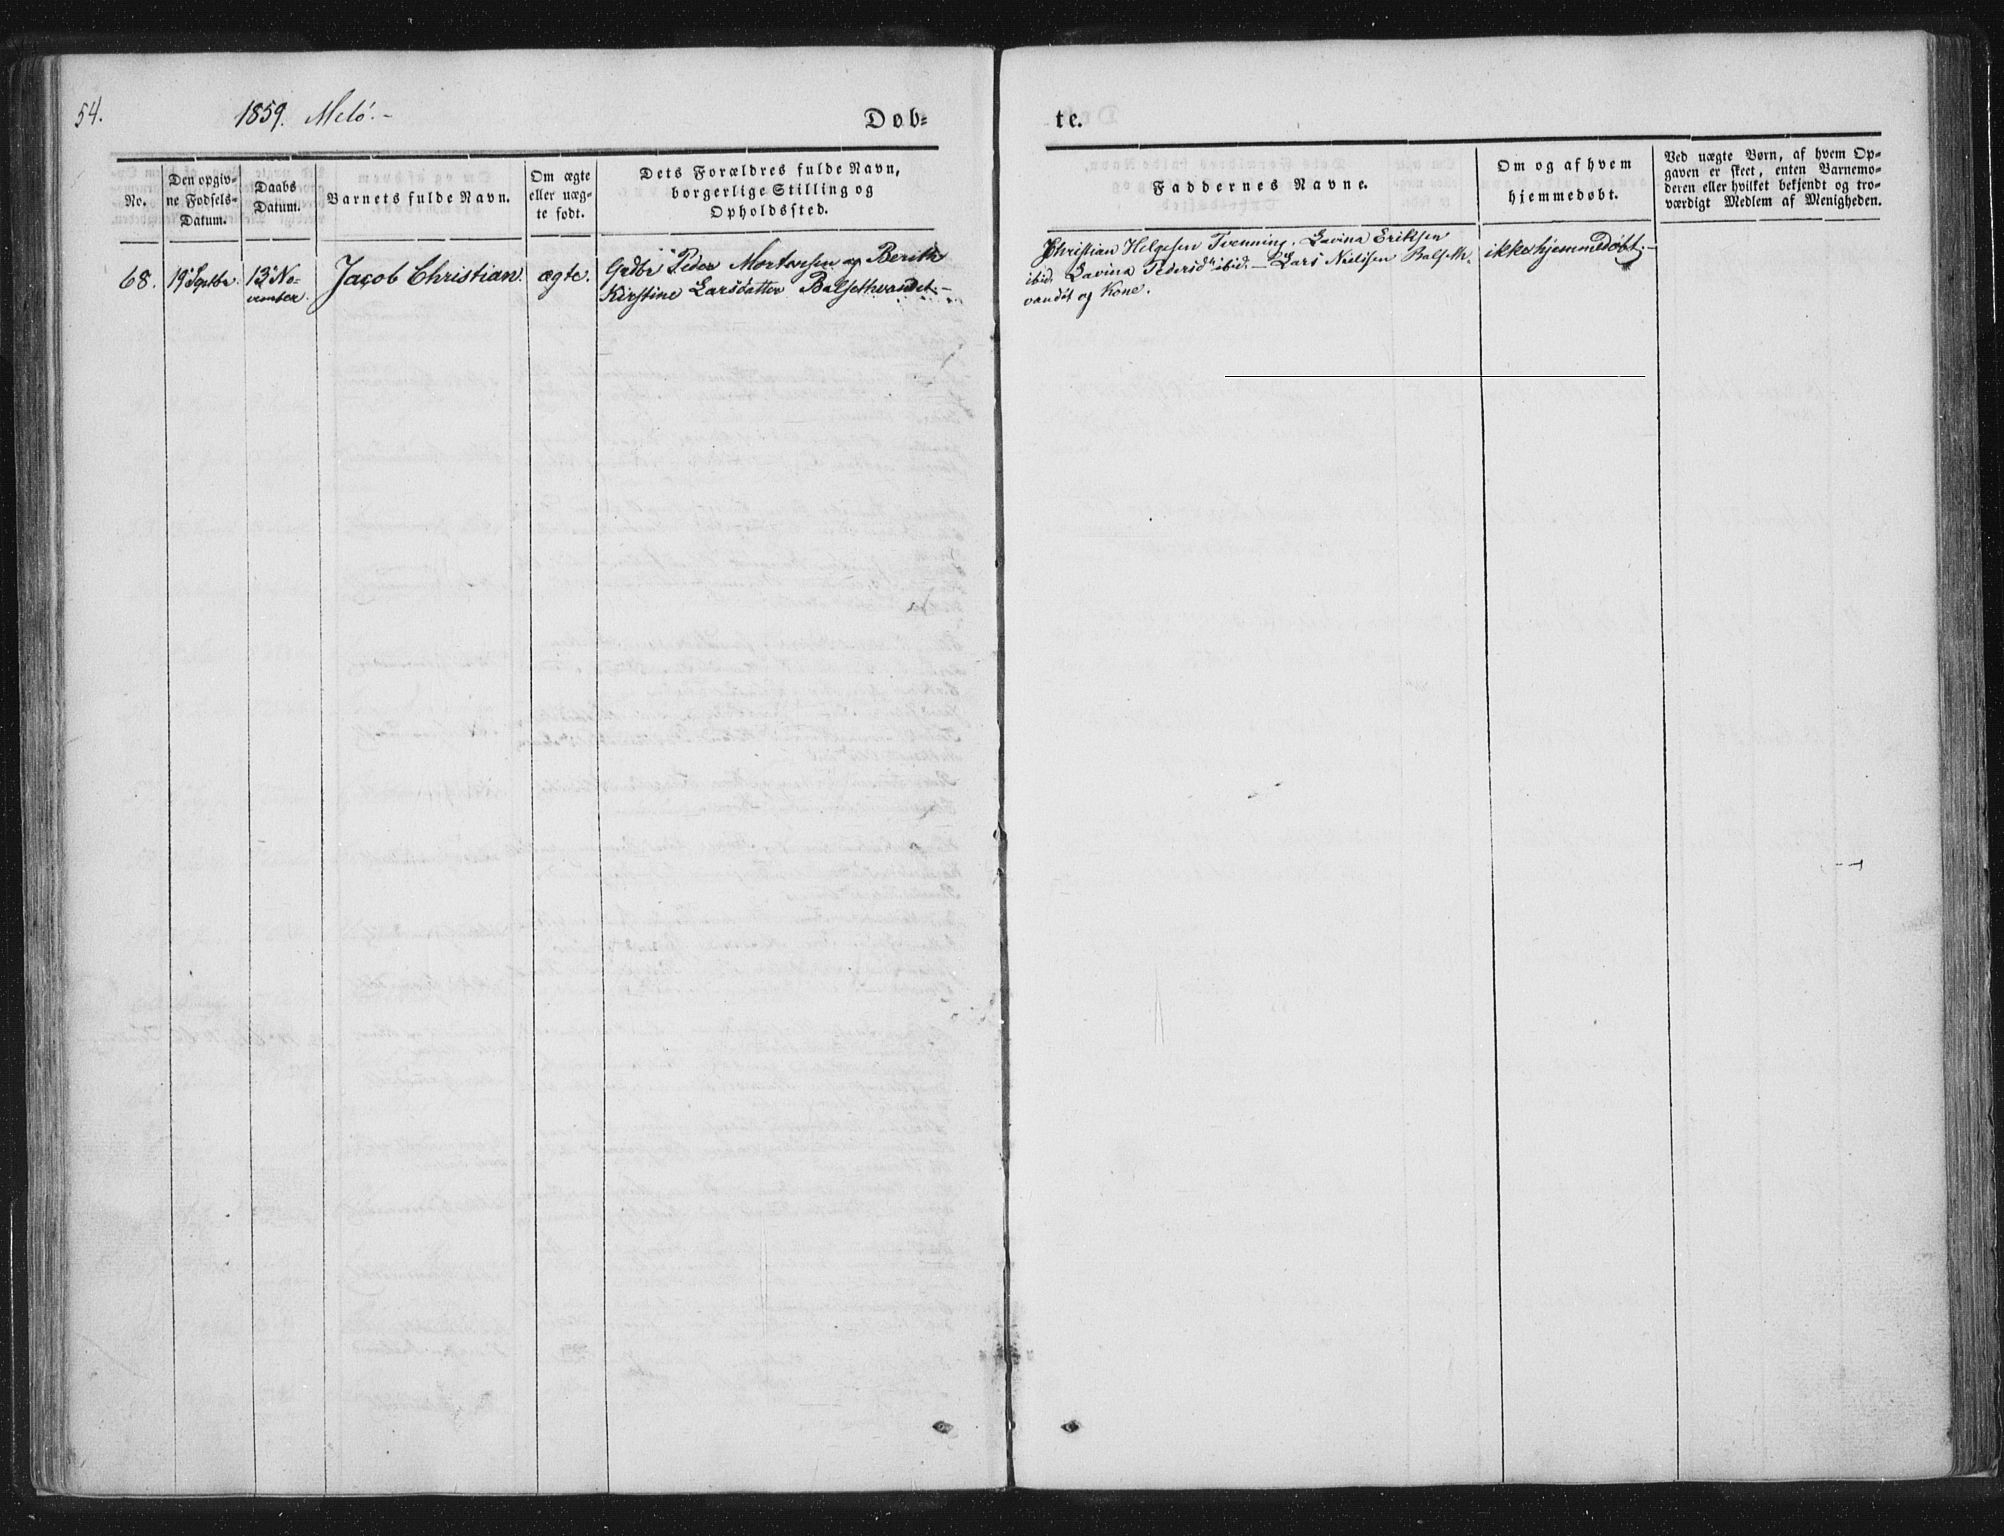 54.
1859. Melö.-
Døb=
te.
No.
Den opgiv-
ne Fødsels-
Datum.
Daabs
Datum.
Barnets fulde Navn.
Om ægte
eller uæg-
te født.
Dets Forældres fulde Navn,
borgerlige Stilling og
Opholdssted.
Faddernes Navne.
Om og af hvem
hjemmedøbt.
Ved uægte Børn, af hvem Op-
gaven er skeet, enten Barnemo-
deren eller hvilket bekjendt og tro-
værdigt Medlem af Menigheden.
68.
19 Septbr
13 No-
vember.
Jacob Christian.
ægte.
Gdbr Peder Mortensen og Berith
Kirstine Larsdatter Balsethvandet.-
Christian Helgesen Tvenning. Lavina Eriksen
ibid. Lavina Pedersd ibid.- Lars Nielsen Balseth-
vandet og Kone.
ikke hjemmedøbt.-